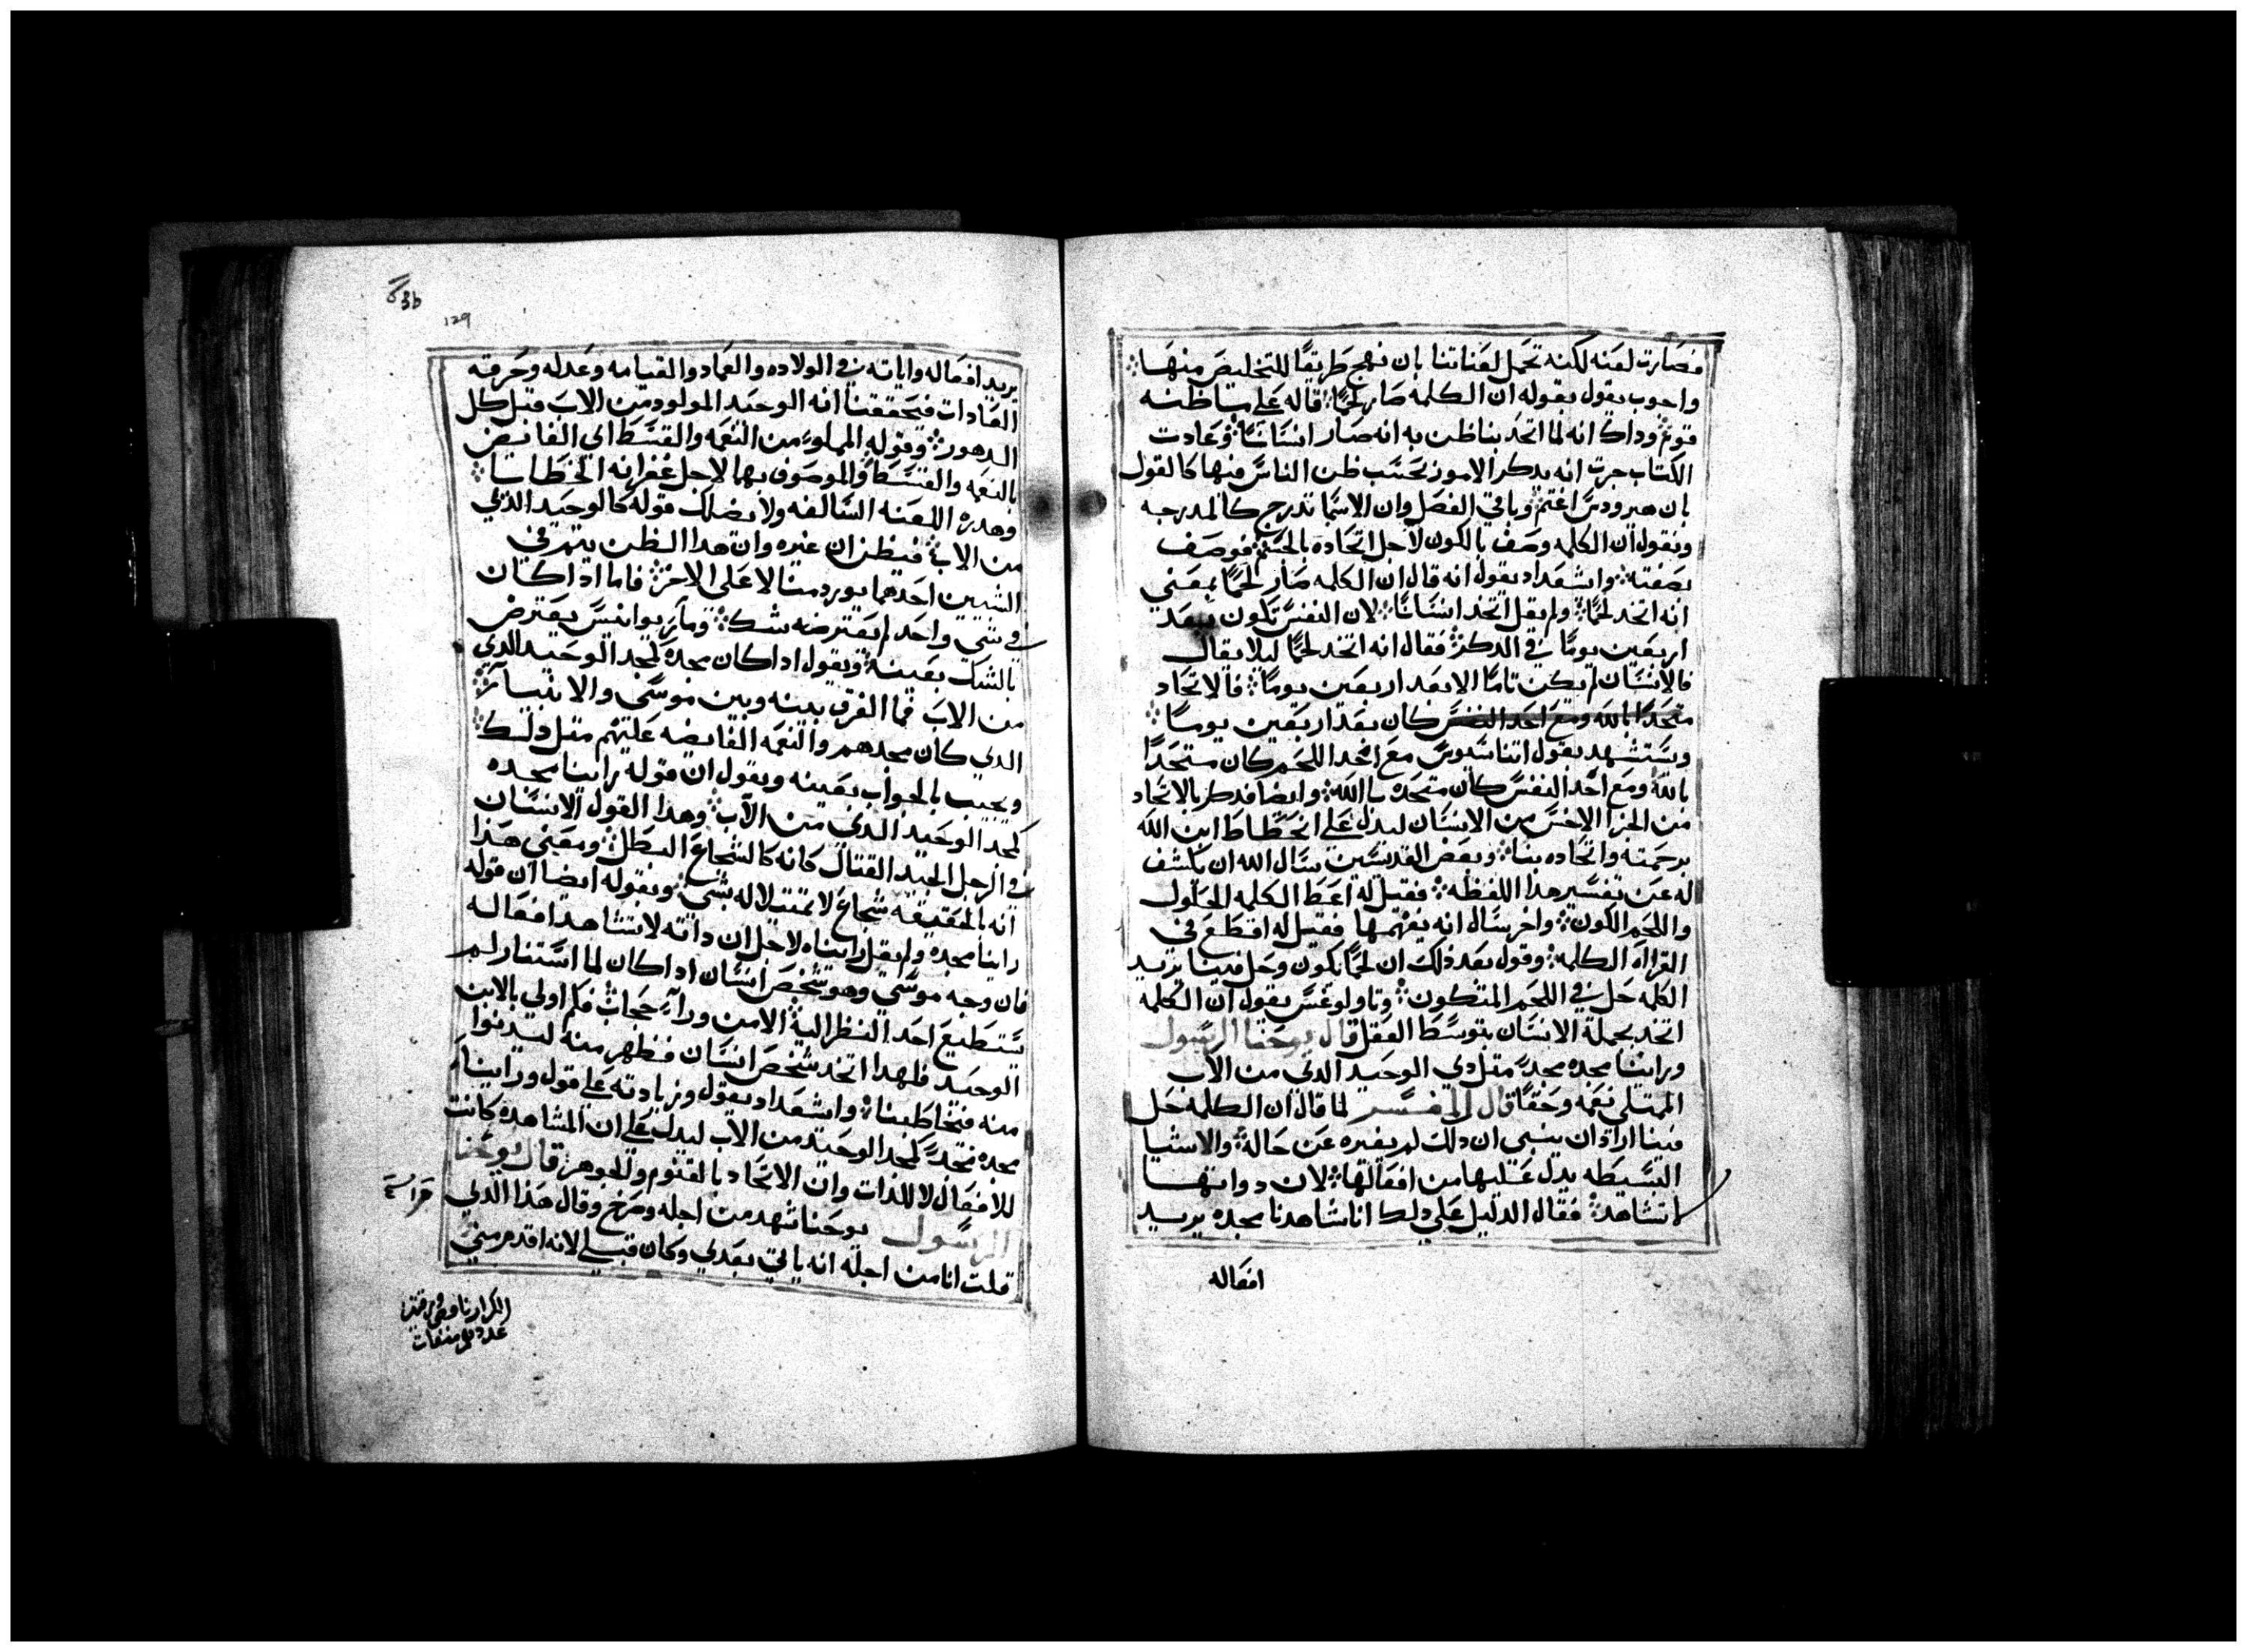 فصارت لعنه لكنه تحمل لعناتنا بان نهج طريقا للتخليص منها
واحوب يقول بقوله ان الكلمه صار لحما قاله على ما ظنه
قوم وداك انه لما اتحد بنا ظن به انه صار انسانا وعادت
الكتاب جرت انه يدكر الامور بحسب ظن الناس فيها كالقول
بان هيرودس اغتم وباقي الفصل وان الاسما تدرج كالمدرجه
ونقول ان الكلمه وصف بالكون لاجل اتحاده بالجسم فوصف
بصفته وايشعداد يقول انه قال ان الكلمه صار لحما بمعنى
انه اتخد لحما ولم يقل اتخد انسانا لان النفس تكون بعد
اربعين يوما في الدكر فقال انه اتخد لحما ليلا يقال
فالانسان لم يكن تاما الا بعد اربعين يوما فالاتحاد
متحدا بالله ومع اخد النفس كان بعد اربعين يوما
ويستشهد بقول اتناسيوس مع اخد اللحم كان متحدا
بالله ومع اخد النفس كان متحده بالله وايضا فدكر بالاتحاد
من الجزا الاخس من الانسان ليدل على انحطاط ابن الله
برحمته واتحاده بنا وبعض القديسين سال الله ان يكشف
له عن تفسير هدا اللفظه فقيل له اعط الكلمه الحلول
واللحم الكون واخر سال انه يفهمها فقيل له اقطع في
القراه الكلمه وقول بعد ذلك ان لحما يكون وحل فينا يريد
الكلمه حل في اللحم المتكون وتاولوغس يقول ان الكلمه
اتخد بجملة الانسان بتوسط العقل قال يوحنا الرسول
وراينا مجده مجد مثل دي الوحيد الدي من الاب
الممتلي نعمه وحقا قال المفسر لما قال ان الكلمه حل
فينا اراد ان ينبي ان دلك لم يغيره عن حاله والاشيا
البسيطه يدل عليها من افعالها لان دواتها
لا تشاهد فقال الدليل على دلك انا شاهدنا مجده يريد
افعاله
63b
129
يريد افعاله واياته في الولاده والعماد والقيامه وعدله وخرقه
العادات فتحققنا انه الوحيد المولود من الاب قبل كل
الدهور وقوله المملوء من النعمه والقسط اي الفايض
بالنعمه والقسط والموصوف بهما لاجل غفرانه الخطايا
وهده اللعنه السالفه ولا يضلك قوله كالوحيد الذي
من الاب فيظن ان غيره وان هدا الظن يتم في
الشيين احدهما يورد مثالا على الاخر فاما ادا كان
في شي واحد لم يعترضه شك ومار يوانيس يعترض
بالشك بعينه ويقول ادا كان مجده كمجد الوحيد الدي
من الاب فما الفرق بينه وبين موسى والانبيا
الدي كان مجدهم والنعمه الفايضه عليهم مثل دلك
ويجيب بالجواب بعينه ويقول ان قوله راينا مجده
كمجد الوحيد الدي من الاب وهدا القول الانسان
في الرجل الجيد القتال كانه كالشجاع البطل ومعنى هذا
انه بالحقيقه شجاع لا تمتيلا له بشي وبقوله ايضا ان قوله
راينا مجده ولم يقل رايناه لاجل ان داته لا تشاهد افعاله
فان وجه موسي وهو شخص انسان ادا كان لما استنار لم
يستطيع احد النظر اليه الا من وراء حجاب فكم اولي بالابن
الوحيد فلهدا اتخد شخص انسان فظهر منه ليدنوا
منه فتخاطبنا وايشعداد يقول وزيادته على قول وراينا
مجده مجد كمجد الوحيد من الاب ليدل على ان المشاهده كانت
للافعال لا للذات وان الاتحاد بالقنوم والجوهر قال يوحنا
الرسول يوحنا شهد من اجله وصرخ وقال هذا الدي
قلت انا من اجله انه ياتي بعدي وكان قبلي لانه اقدم مني
قراءة